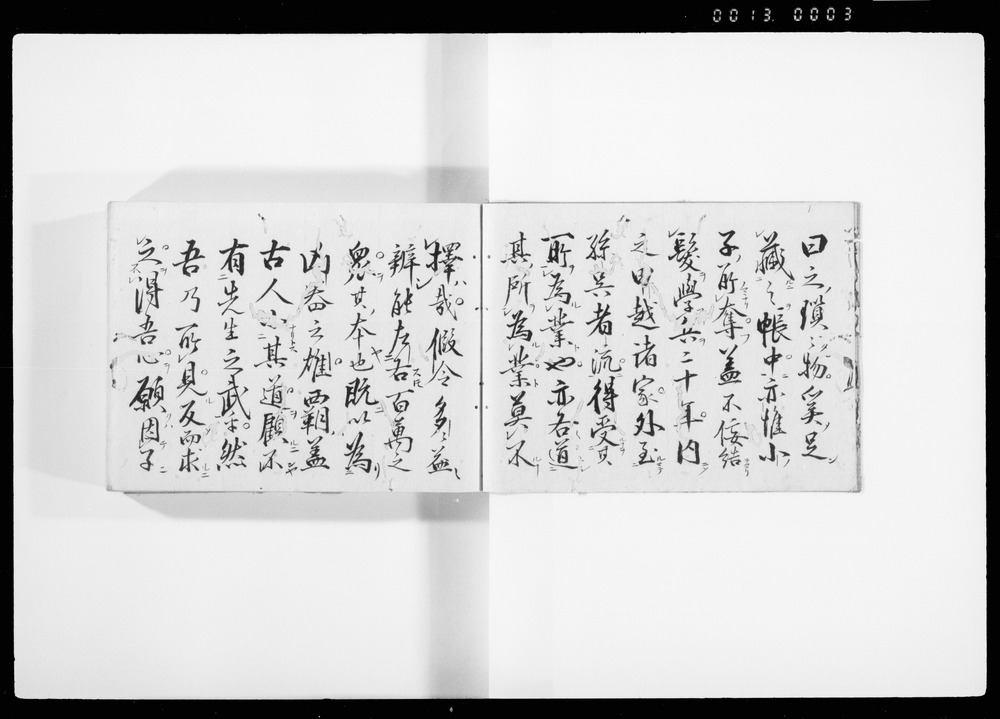 0013. 0003
曰之瑣々物奚足
藏之帳中亦惟小
子所奪蓋不佞結
髮學兵二十年内
之甲越諸家外至
孫吳者流得受其
所為業也亦各道
其所為業莫不
擇哉假令多々益
辨能左右百萬之
衆其本也既以為
凶器之雄霸蓋
古人小其道顧不
有先生之武乎然
吾乃所見反而求
之得吾心願因子